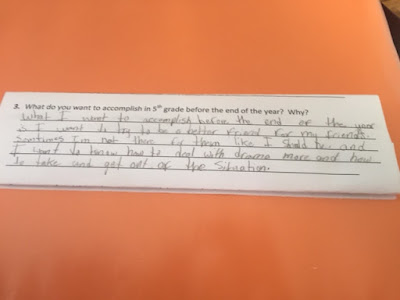 3. What do you want to accomplish in 5th grade before the end of the year? Why?
What I want to accomplish before the end of the year
is I want to try to be a better friend for my friends.
Sometimes I'm not there for them like I should be. and
I want to know how to deal with drama more and how
to take and get out of the situation.